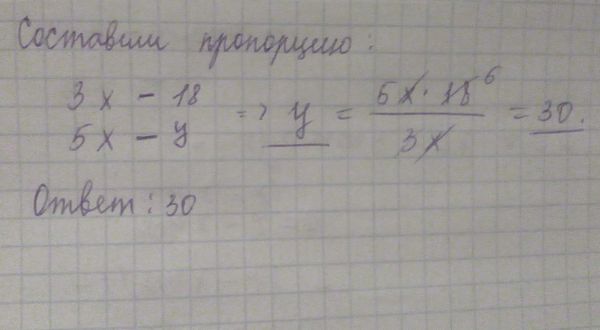 Составили пропорцию:
3x – 18
5x – y
=> y = 5x · 18 6 / 3x = 30.
Ответ: 30